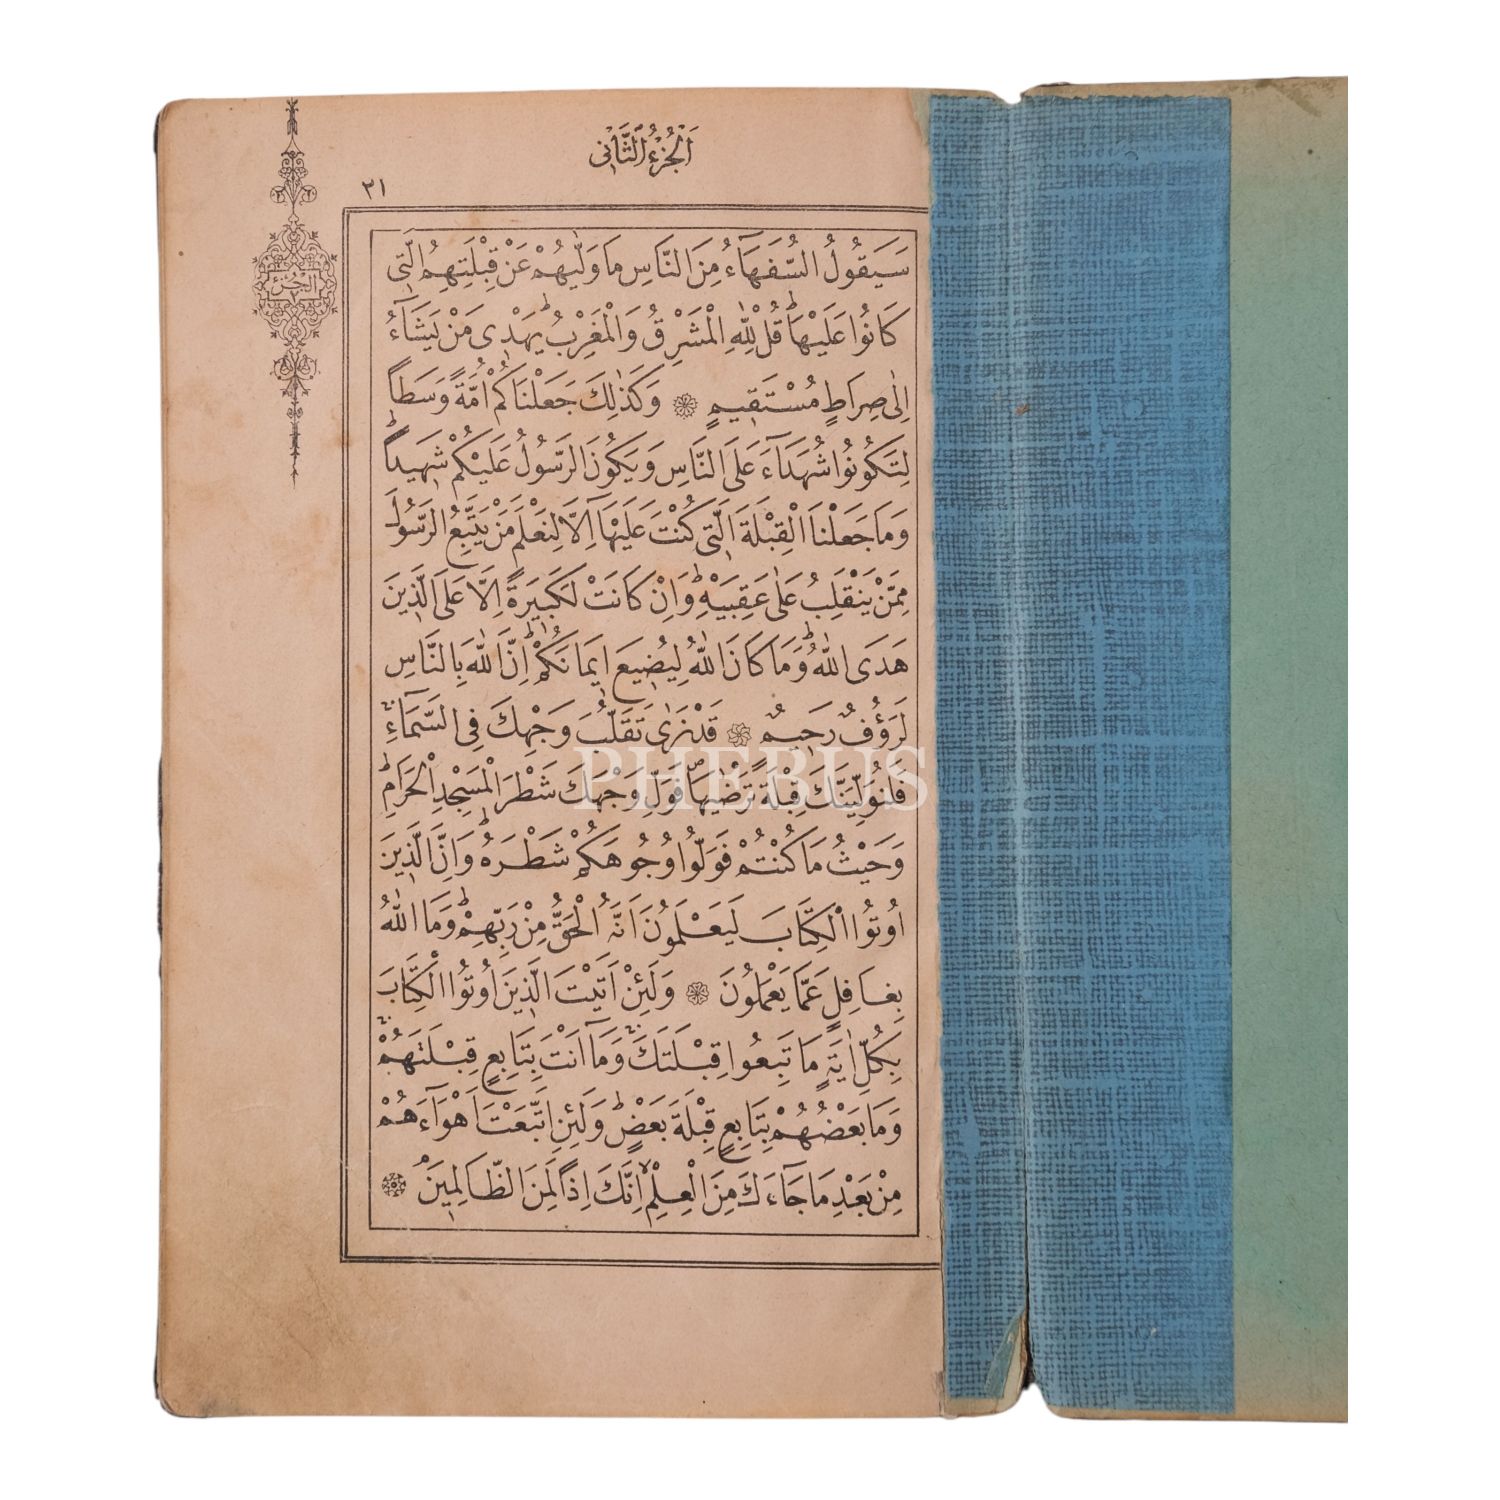 اَلْجُزْءُ الثَّانٖى
٢١
اَلْجُزْءُ
٢
سَيَقُولُ السُّفَهَٓاءُ مِنَ النَّاسِ مَا وَلّٰيهُمْ عَنْ قِبْلَتِهِمُ الَّتٖى
كَانُوا عَلَيْهَاؕ قُلْ لِلّٰهِ الْمَشْرِقُ وَالْمَغْرِبُؕ يَهْدٖى مَنْ يَشَٓاءُ
اِلٰى صِرَاطٍ مُسْتَقٖيمٍ ۞ وَكَذٰلِكَ جَعَلْنَاكُمْ اُمَّةً وَسَطاً
لِتَكُونُوا شُهَدَٓاءَ عَلَى النَّاسِ وَيَكُونَ الرَّسُولُ عَلَيْكُمْ شَهٖيداًؕ
وَمَا جَعَلْنَا الْقِبْلَةَ الَّتٖى كُنْتَ عَلَيْهَٓا اِلَّا لِنَعْلَمَ مَنْ يَتَّبِعُ الرَّسُولَ
مِمَّنْ يَنْقَلِبُ عَلٰى عَقِبَيْهِؕ وَاِنْ كَانَتْ لَكَبٖيرَةً اِلَّا عَلَى الَّذٖينَ
هَدَى اللّٰهُؕ وَمَا كَانَ اللّٰهُ لِيُضٖيعَ اٖيمَانَكُمْؕ اِنَّ اللّٰهَ بِالنَّاسِ
لَرَؤُفٌ رَحٖيمٌ ۞ قَدْ نَرٰى تَقَلُّبَ وَجْهِكَ فِى السَّمَٓاءِۚ
فَلَنُوَلِّيَنَّكَ قِبْلَةً تَرْضٰيهَاۖ فَوَلِّ وَجْهَكَ شَطْرَ الْمَسْجِدِ الْحَرَامِؕ
وَحَيْثُ مَا كُنْتُمْ فَوَلُّوا وُجُوهَكُمْ شَطْرَهُؕ وَاِنَّ الَّذٖينَ
اُوتُوا الْكِتَابَ لَيَعْلَمُونَ اَنَّهُ الْحَقُّ مِنْ رَبِّهِمْؕ وَمَا اللّٰهُ
بِغَافِلٍ عَمَّا يَعْمَلُونَ ۞ وَلَئِنْ اَتَيْتَ الَّذٖينَ اُوتُوا الْكِتَابَ
بِكُلِّ اٰيَةٍ مَا تَبِعُوا قِبْلَتَكَۚ وَمَٓا اَنْتَ بِتَابِعٍ قِبْلَتَهُمْۚ
وَمَا بَعْضُهُمْ بِتَابِعٍ قِبْلَةَ بَعْضٍؕ وَلَئِنِ اتَّبَعْتَ اَهْوَٓاءَهُمْ
مِنْ بَعْدِ مَا جَٓاءَكَ مِنَ الْعِلْمِۙ اِنَّكَ اِذاً لَمِنَ الظَّالِمٖينَۘ ۞
PHEBUS